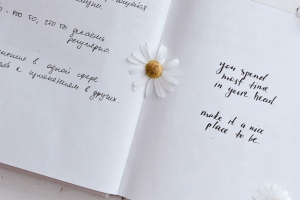 - кто то, кто то делать
регулярно.
в одной сфере
к изменениям в других.
you spend
most time
in your head
make it a nice
place to be.